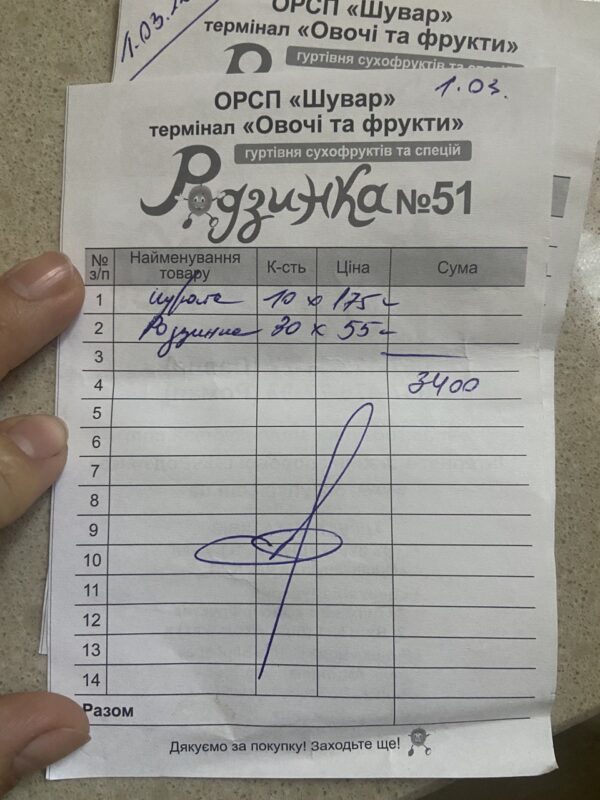 1.03.
ОРСП «Шувар»
термінал «Овочі та фрукти»
гуртівня сухофруктів та спецій
1.03.
ОРСП «Шувар»
термінал «Овочі та фрукти»
гуртівня сухофруктів та спецій
Родзинка №51
№ з/п Найменування товару К-сть Ціна Сума
1 курага 10 x 175-
2 Родзинки 30 x 55-
3
4 3400
5
6
7
8
9
10
11
12
13
14
Разом
Дякуємо за покупку! Заходьте ще!